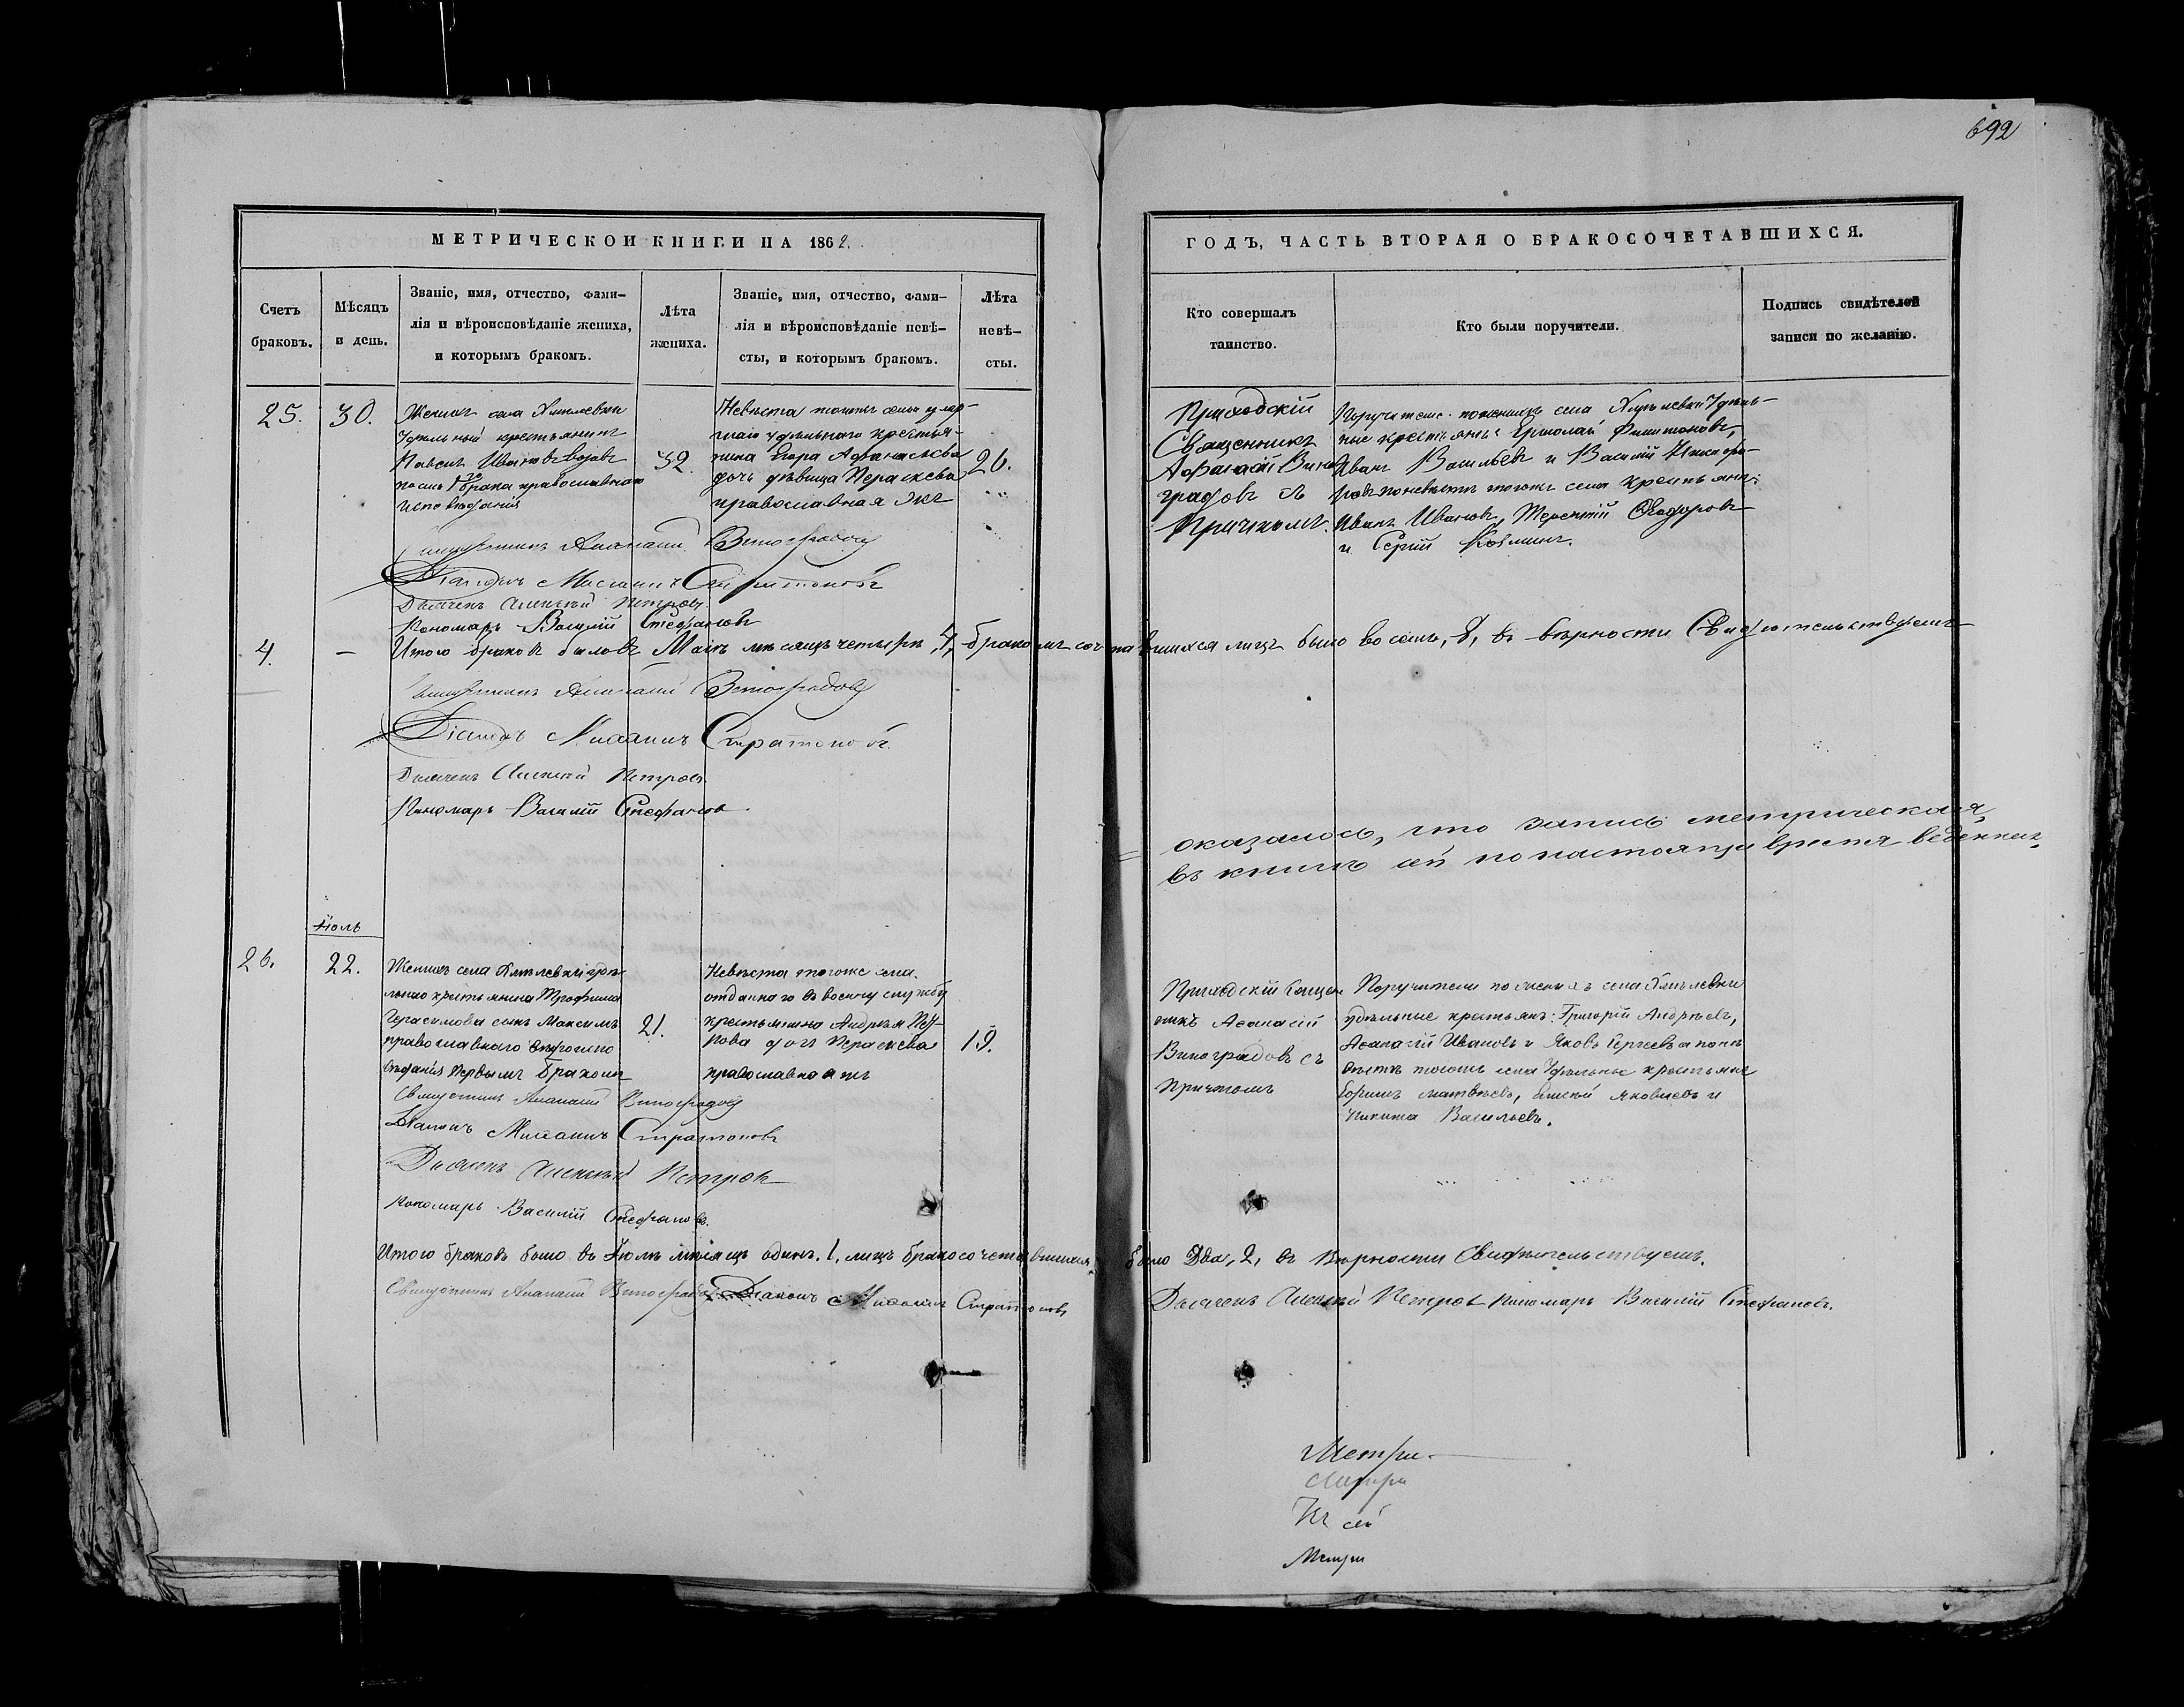 692
МЕТРИЧЕСКОЙ КНИГИ НА 1862.
ГОДЪ, ЧАСТЬ ВТОРАЯ О БРАКОСОЧЕТАВШИХСЯ.
Счетъ
браковъ.
Мѣсяцъ
и день.
Званіе, имя, отчество, фами-
лія и вѣроисповѣданіе жениха,
и которымъ бракомъ.
Лѣта
жениха.
Званіе, имя, отчество, фами-
лія и вѣроисповѣданіе невѣ-
сты, и которымъ бракомъ.
Лѣта
невѣ-
сты.
Кто совершалъ
таинство.
Кто были поручители.
Подпись свидѣтелей
записи по желанію.
25.
30.
Женихъ села
удѣльный крестьянинъ
Иванъ
послѣ 1го брака православнаго
исповѣданія
32.
Невѣста тогоже села умер-
шаго удѣльнаго крестья-
нина Егора Афанасьева
дочь дѣвица Параскева
православная же
26.
Приходскій
Священникъ
Афанасій Вино-
градовъ съ
Причтомъ.
Поручители по женихѣ села удѣль-
ные крестьяне: Ермолай Филимоновъ,
Иванъ Васильевъ и Василій Никифо-
ровъ по невѣстѣ тогоже села крестьяне:
Иванъ Ивановъ, Терентій Ѳеодоровъ
и Сергій Козминъ.
Священникъ Аѳанасій Виноградовъ
Діаконъ Мисаилъ Стратоновъ
Дьячекъ Алексѣй Петровъ
Пономарь Василій Стефановъ
4.
—
Итого браковъ было въ Маѣ мѣсяцѣ четыре, 4, бракомъ сочетавшихся лицъ было восемь, 8, въ вѣрности Свидѣтельствуемъ
Священникъ Аѳанасій Виноградовъ
Діаконъ Мисаилъ Стратоновъ
Дьячекъ Алексѣй Петровъ
Пономарь Василій Стефановъ.
оказалось, что запись метрическая,
въ книгѣ сей по настоящее время веденная,
Іюль
26.
22.
Женихъ села удѣ-
льнаго крестьянина Трофима
Герасимова сынъ Максимъ
православнаго вѣроиспо-
вѣданія первымъ бракомъ
21.
Невѣста тогоже села
отданнаго въ военну службу
крестьянина Андрея Пет-
рова дочь Параскева
православная же
19.
Приходскій Священ-
никъ Аѳанасій
Виноградовъ съ
Причтомъ
Поручители по женихѣ села
удѣльные крестьяне: Григорій Андреевъ,
Аѳанасій Ивановъ и Яковъ Сергѣевъ а по не-
вѣстѣ тогоже села Удѣльные крестьяне
Матвѣевъ, Алексѣй Яковлевъ и
Никита Васильевъ.
Священникъ Аѳанасій Виноградовъ
Діаконъ Мисаилъ Стратоновъ
Дьячекъ Алексѣй Петровъ
Пономарь Василій Стефановъ.
Итого браковъ было въ Іюлѣ мѣсяцѣ одинъ, 1, лицъ бракосочетавшихся было Два, 2, въ вѣрности Свидѣтельствуемъ.
Священникъ Аѳанасій Виноградовъ Діаконъ Мисаилъ Стратоновъ Дьячекъ Алексѣй Петровъ Пономарь Василій Стефановъ.
Метри-
Метри
сей
Метри